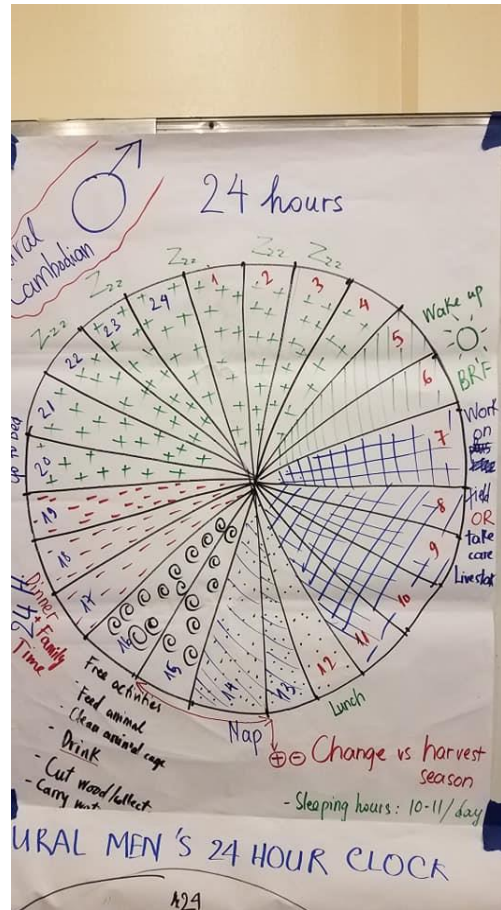 24 hours
Cambodian
Zzz
Zzz
Zzz
Zzz
Zzz
1
2
3
4
5
6
7
8
9
10
11
12
13
14
15
16
17
18
19
20
21
22
23
24
Wake up
BRF
Work
on
field
OR
take
care
Livestok
Lunch
Nap
to bed
Dinner
+ Family
Time
24 H
Free activities
- Feed animal
- Clean animal cage
- Drink
- Cut wood/collect
- Carry
+ - Change vs harvest
season
- Sleeping hours: 10-11/day
URAL MEN'S 24 HOUR CLOCK